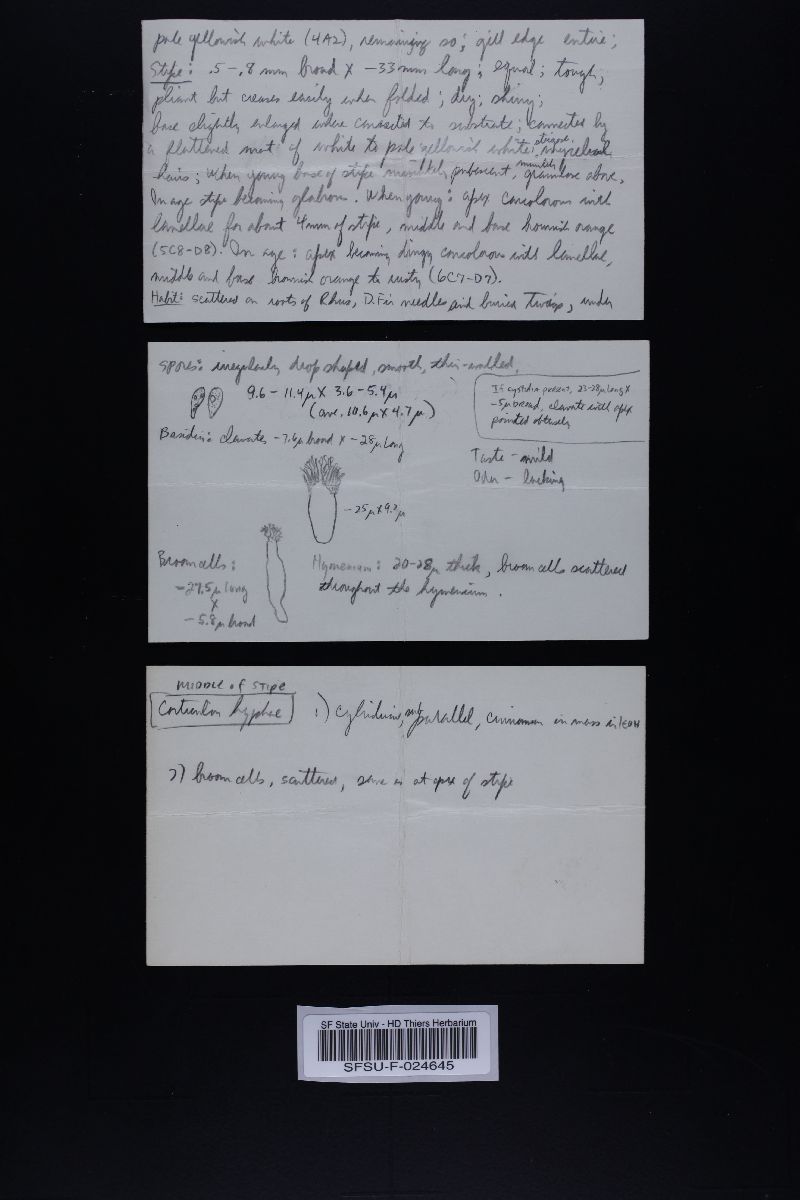 pale yellowish white (4A2), remaining so; gill edge entire;
Stipe: .5-.8 mm broad X -33mm long; equal; tough;
pliant but creases easily when folded; dry; shiny;
base slightly enlarged where connected to substrate; connected by
a flattened mat of white to pale yellowish white, strigose, mycelial
hairs; when young base of stipe minutely pubescent, minutely granulose above,
In age stipe becoming glabrous. When young: apex concolorous with
lamellae for about 4mm of stipe, middle and base brownish orange
(5C8-D8). In age: apex becoming dingy concolorous with lamellae,
middle and base brownish orange to rusty (6C7-D7).
Habit: scattered on roots of Rhus, D.Fir needles and buried twigs, under
Spores: irregularly drop shaped, smooth, thin-walled,
9.6-11.4µ X 3.6-5.4µ
(ave. 10.6µ X 4.7µ)
If cystidia present, 23-28µ long X
-5µ broad, clavate with apex
pointed obtusely
Basidia: clavate -7.6µ broad X -28µ long
Taste - mild
Odor - lacking
-25µ X 9.2µ
Broom cells:
-27.5µ long
X
-5.8µ broad
Hymenium: 20-28µ thick, broom cells scattered
throughout the hymenium.
MIDDLE of STIPE
Cortical hyphae
1) cylindric, subparallel, cinnamon in mass in KOH
2) broom cells, scattered, same as at apex of stipe
SF State Univ - HD Thiers Herbarium
SFSU-F-024645